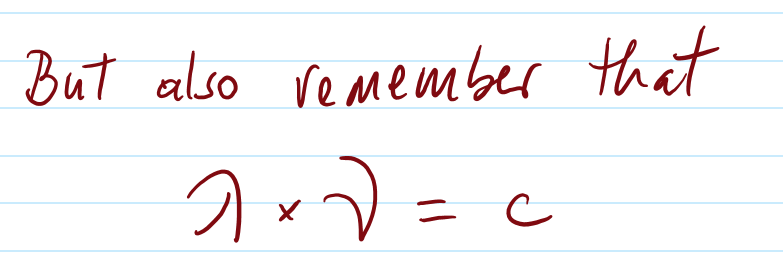 But also remember that
λ × ν = c